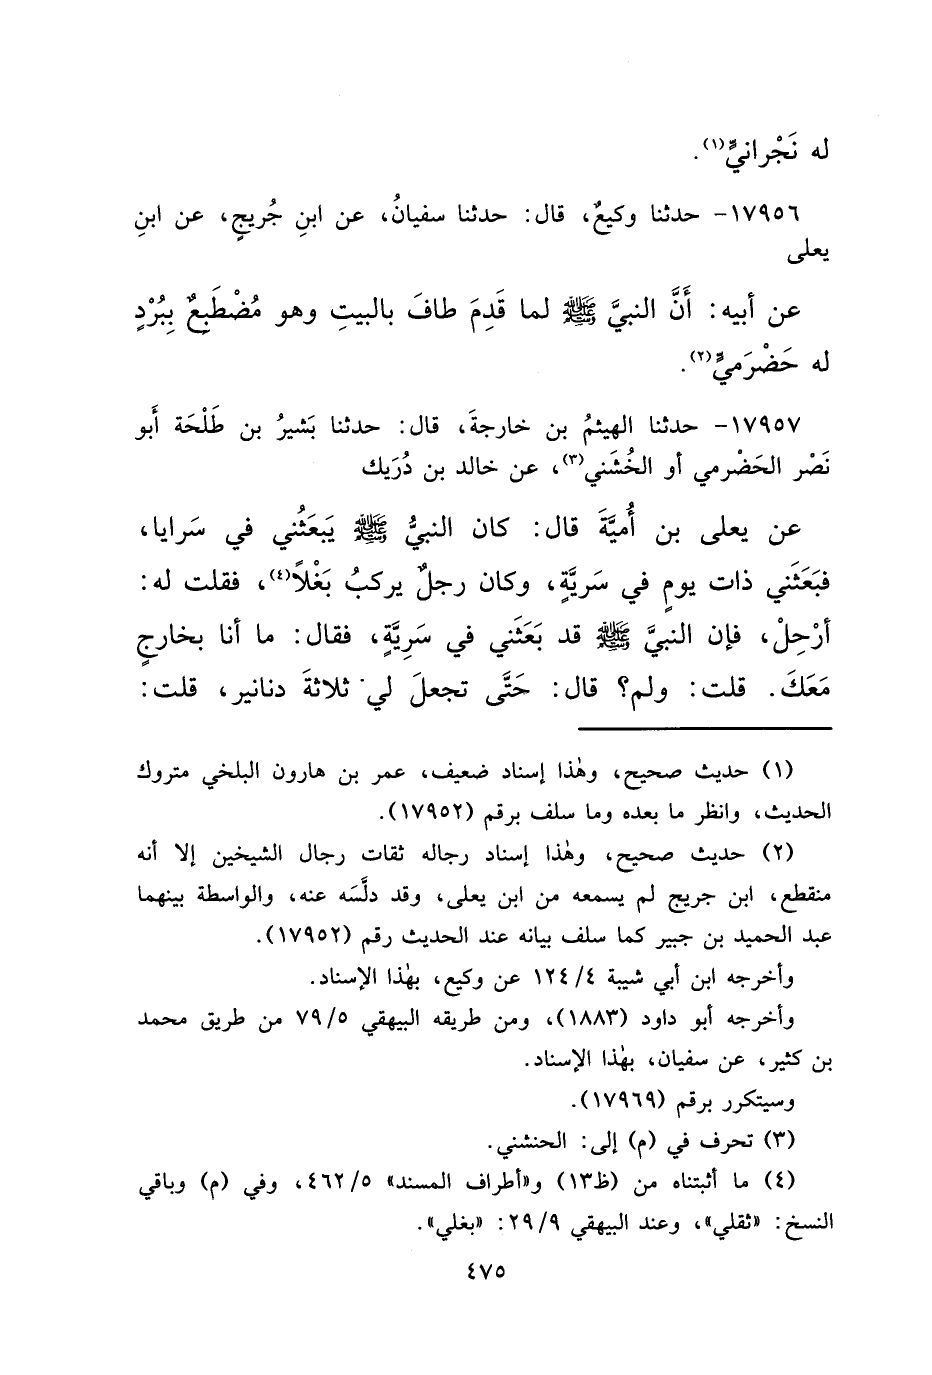 له نَجْرانيٍّ(١).
١٧٩٥٦- حدثنا وكيعٌ، قال: حدثنا سفيانُ، عن ابنِ جُريجٍ، عن ابنِ
يعلى
عن أبيه: أَنَّ النبيَّ ﷺ لما قَدِمَ طافَ بالبيتِ وهو مُضْطَبِعٌ بِبُرْدٍ
له حَضْرَميٍّ(٢).
١٧٩٥٧- حدثنا الهيثمُ بن خارجةَ، قال: حدثنا بَشيرُ بن طَلْحَة أَبو
نَصْر الحَضْرمي أو الخُشَني(٣)، عن خالد بن دُرَيك
عن يعلى بن أُميَّةَ قال: كان النبيُّ ﷺ يَبعَثُني في سَرايا،
فبَعَثَني ذات يومٍ في سَريَّةٍ، وكان رجلٌ يركبُ بَغْلاً(٤)، فقلت له:
أرْحِلْ، فإن النبيَّ ﷺ قد بَعَثَني في سَرِيَّةٍ، فقال: ما أنا بخارجٍ
مَعَكَ. قلت: ولم؟ قال: حَتَّى تجعلَ لي ثلاثةَ دنانير، قلت:
(١) حديث صحيح، وهٰذا إسناد ضعيف، عمر بن هارون البلخي متروك
الحديث، وانظر ما بعده وما سلف برقم (١٧٩٥٢).
(٢) حديث صحيح، وهٰذا إسناد رجاله ثقات رجال الشيخين إلا أنه
منقطع، ابن جريج لم يسمعه من ابن يعلى، وقد دلَّسَه عنه، والواسطة بينهما
عبد الحميد بن جبير كما سلف بيانه عند الحديث رقم (١٧٩٥٢).
وأخرجه ابن أبي شيبة ١٢٤/٤ عن وكيع، بهٰذا الإسناد.
وأخرجه أبو داود (١٨٨٣)، ومن طريقه البيهقي ٧٩/٥ من طريق محمد
بن كثير، عن سفيان، بهٰذا الإسناد.
وسيتكرر برقم (١٧٩٦٩).
(٣) تحرف في (م) إلى: الحنشني.
(٤) ما أثبتناه من (ظ١٣) و«أطراف المسند» ٤٦٢/٥، وفي (م) وباقي
النسخ: «ثقلي»، وعند البيهقي ٢٩/٩: «بغلي».
٤٧٥